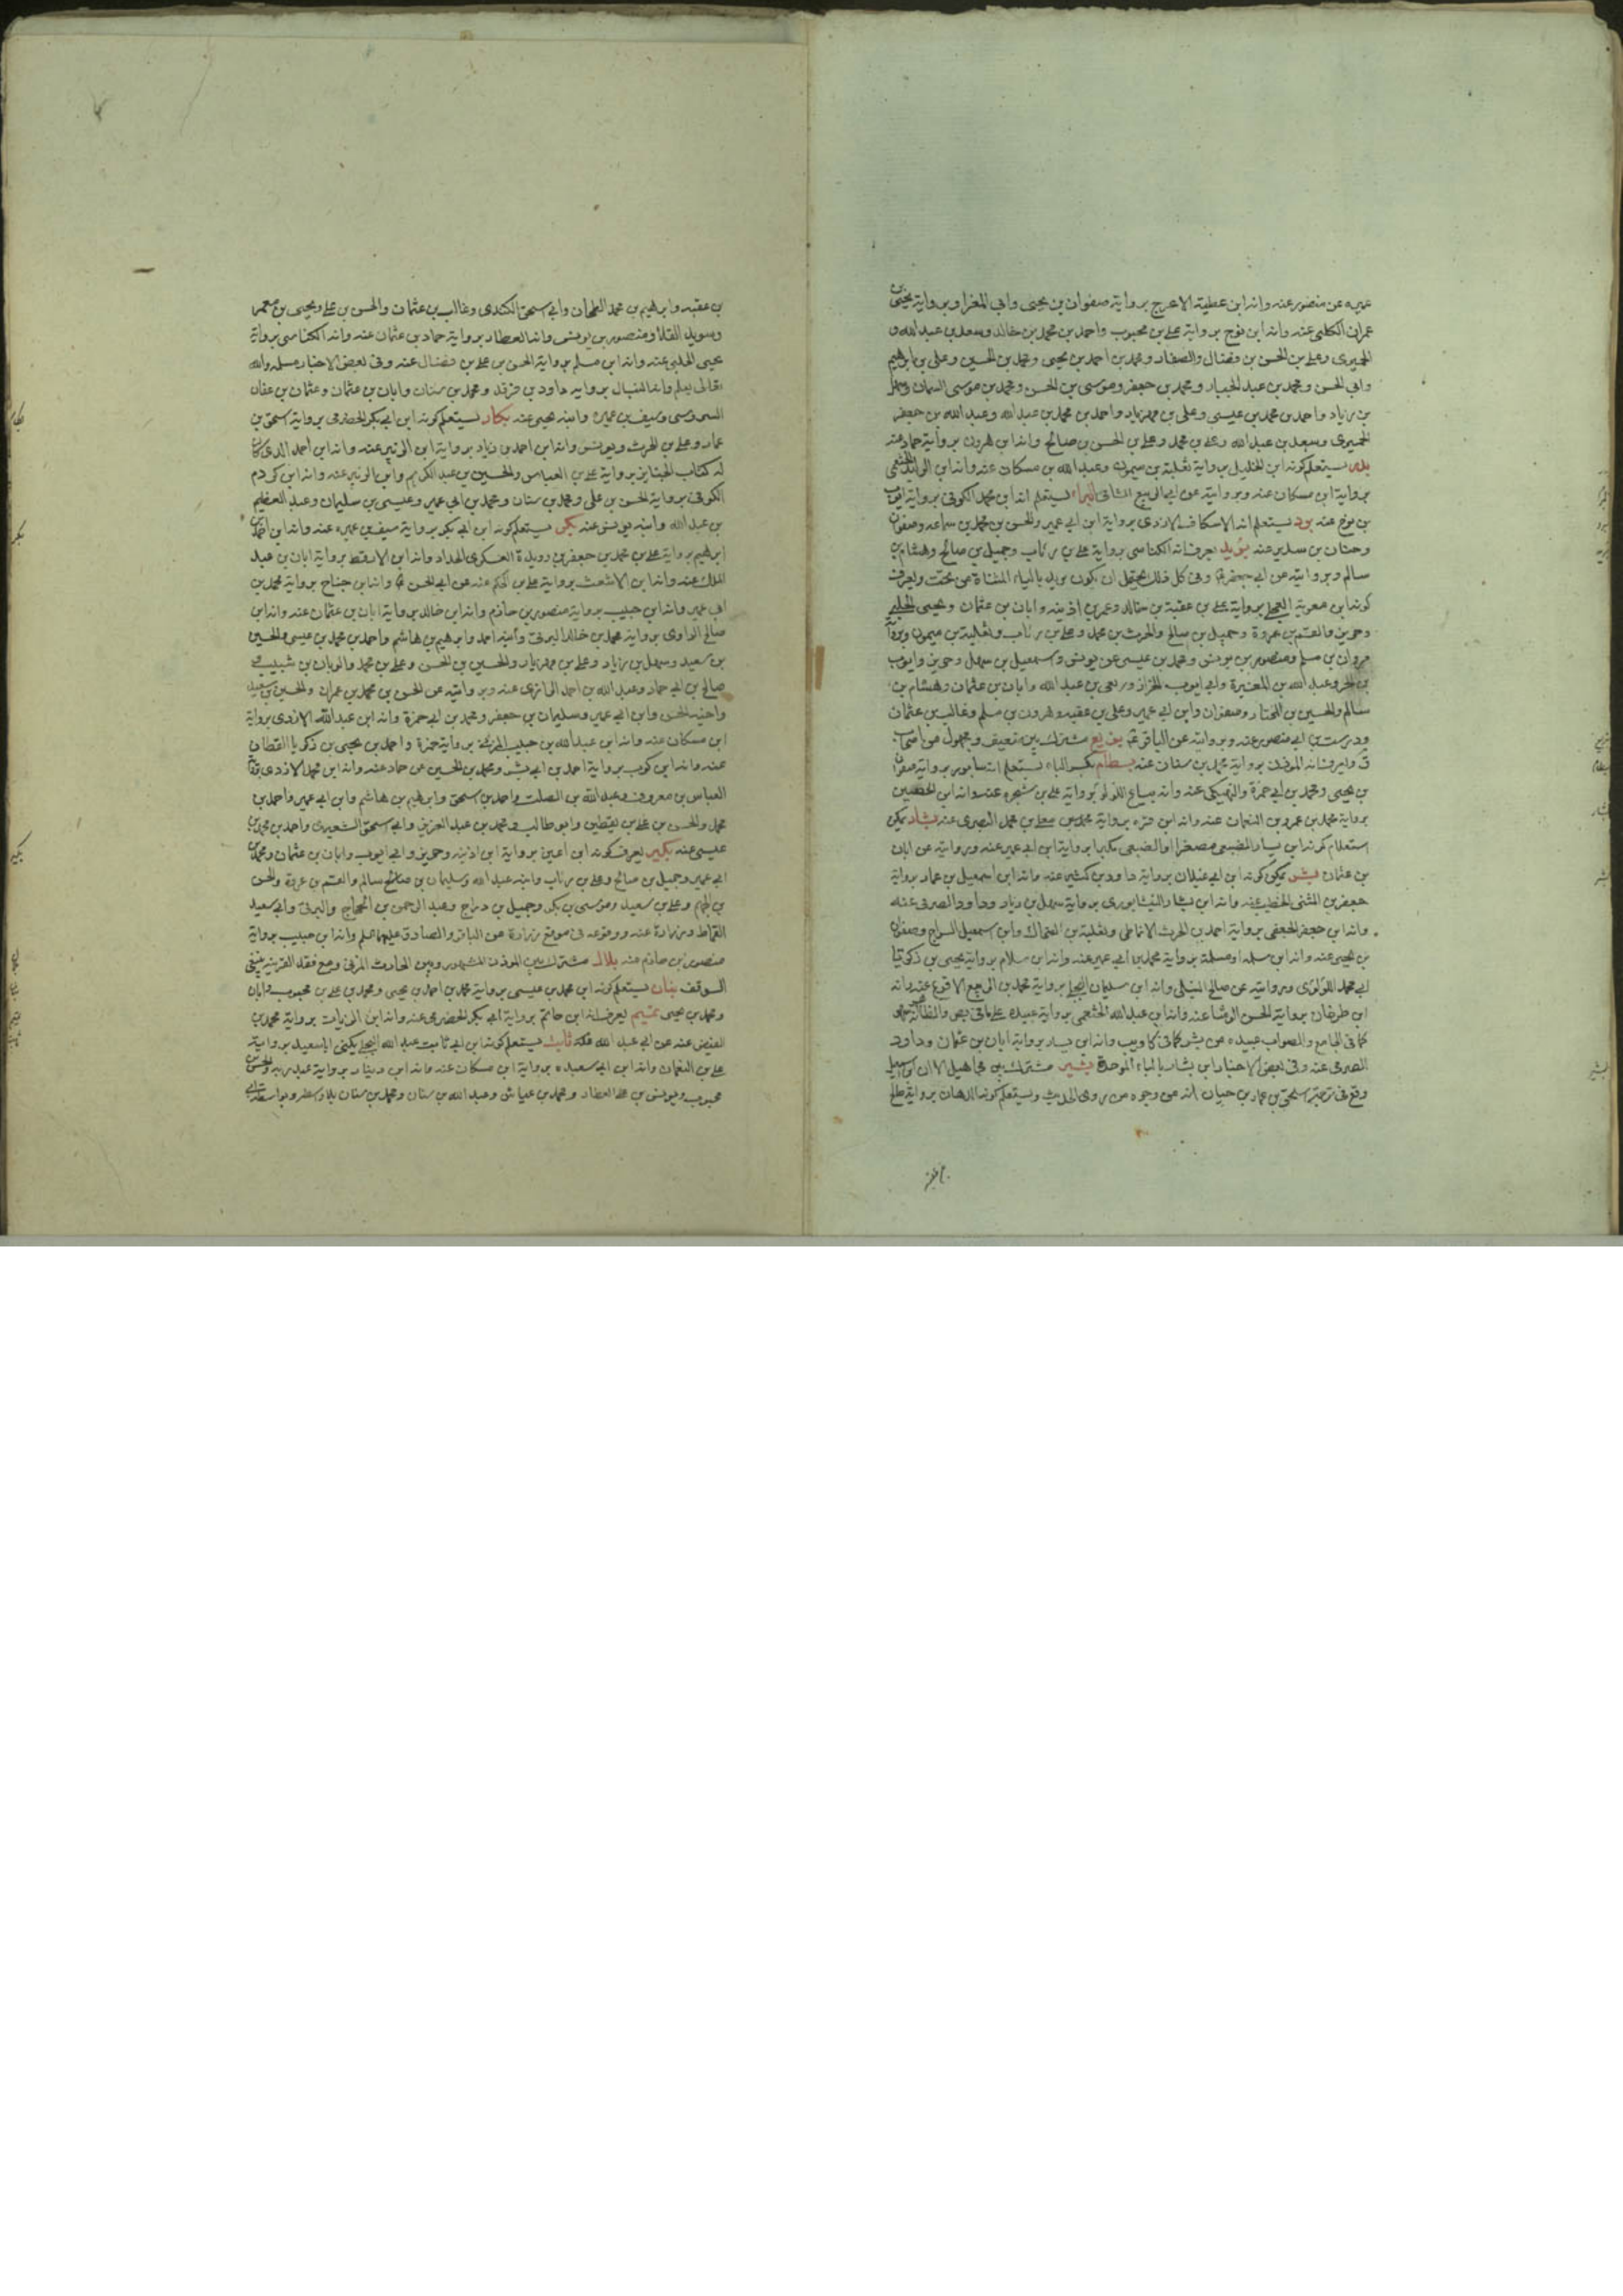 عميره عن منصور عنه وانه ابن عطية الاعرج برواية صفوان بن يحيى وابي المغرا وبرواية يحيى بن
عمران الحلبي عنه وانه ابن نوح برواية علي بن محبوب واحمد بن محمد بن خالد وسعد بن عبد الله و
الحميري وعلي بن الحسن بن فضال والصفار ومحمد بن احمد بن يحيى ومحمد بن الحسين وعلي بن ابرهيم
وابي الحسن ومحمد بن عبد الجبار ومحمد بن جعفر وموسى بن الحسن ومحمد بن موسى السمان وسهل
بن زياد واحمد بن محمد بن عيسى وعلي بن مهزيار واحمد بن محمد بن عبد الله وعبد الله بن جعفر
الحميري وسعد بن عبد الله وعلي بن محمد وعلي بن الحسن بن صالح وانه ابن هرون برواية حماد عنه
بدر يستعلم كونه ابن الخليل برواية ثعلبة بن ميمون وعبد الله بن مسكان عنه وانه ابن الوليد الخثعمي
برواية ابن مسكان عنه وبروايته عن ابي الربيع الشامي البراء يستعلم انه ابن محمد الكوفي برواية ايوب
بن نوح عنه برد يستعلم انه الاسكاف الازدي برواية ابن ابي عمير والحسن بن محمد بن سماعه وصفوان
وحنان بن سدير عنه بريد يعرف انه الكناسي برواية علي بن رئاب وجميل بن صالح وهشام بن
سالم وبروايته عن ابي جعفر ع وفي كل ذلك يحتمل ان يكون يزيد بالياء المثناة من تحت ويعرف
كونه ابن معوية العجلي برواية علي بن عقبة بن خالد وعمر بن اذينه وابان بن عثمان ويحيى الحلبي
وحريز والقسم بن عروة وجميل بن صالح والحرث بن محمد وعلي بن رئاب وثعلبة بن ميمون وبرواية
مروان بن مسلم ومنصور بن يونس ومحمد بن عيسى عن يونس واسمعيل بن سهل وحريز وايوب
بن الحر وعبد الله بن المغيرة وابي ايوب الخزاز وربعي بن عبد الله وابان بن عثمان وهشام بن
سالم والحسين بن المختار وصفوان وابن ابي عمير وعلي بن عقبه وهرون بن مسلم وغالب بن عثمان
ودرست بن ابي منصور عنه وبروايته عن الباقر ع بزيع مشترك بين ضعيف ومجهول من اصحاب
ق ولم يعرف انه الموثق برواية محمد بن سنان عنه بسطام بكسر الباء يستعلم انه سابور برواية صفوان
بن يحيى ومحمد بن ابي حمزة والنهيكي عنه وانه بياع اللؤلؤ برواية علي بن شجره عنه وانه ابن الحصين
برواية محمد بن عمرو بن النعمان عنه وانه ابن مره برواية محمد بن معلى بن محمد البصري عنه بشار يمكن
استعلام كونه ابن يسار الضبيعي مصغرا او الضبعي مكبرا برواية ابن ابي عمير عنه وبروايته عن ابان
بن عثمان بشر يمكن كونه ابن ابي غيلان برواية داود بن كثير عنه وانه ابن اسمعيل بن عمار برواية
جعفر بن المثنى الخطيب عنه وانه ابن بشار النيشابوري برواية سهل بن زياد وداود الصرمي عنه
وانه ابن جعفر الجعفي برواية احمد بن الحرث الانماطي وثعلبة بن الضحاك وابن اسمعيل السراج وصفوان
بن يحيى عنه وانه ابن سلمه او مسلمة برواية محمد بن ابي عمير عنه وانه ابن سلام برواية يحيى بن زكريا
ابي محمد اللؤلؤي وبروايته عن صالح النيلي وانه ابن سليمان البجلي برواية محمد بن الربيع الاقرع عنه وانه
ابن طرخان برواية الحسن الوشا عنه وانه ابن عبد الله الخثعمي برواية عبيده على ما في بعض والظاهر انه سهو
كما في الجامع والصواب عبيده عن بشر كما في كا ويب وانه ابن يسار برواية ابان بن عثمان وداود
الصرمي عنه وفي بعض الاخبار ابن بشار بالباء الموحدة بشير مشترك بين مجاهيل الا ان
وقع في ترجمة اسحق بن عمار بن حيان انه من وجوه من روى الحديث ويستعلم كونه الدهان برواية علي
بن عقبه وابرهيم بن محمد الطحان وابي اسحق الكندي وغالب بن عثمان والحسن بن علي ويحيى بن معمر
وسويد القلا ومنصور بن يونس وانه العطار برواية حماد بن عثمان عنه وانه الكناسي برواية
يحيى الحلبي عنه وانه ابن مسلم برواية الحسن بن علي بن فضال عنه وفي بعض الاخبار مسلمه والله
تعالى يعلم وانه النبال برواية داود بن فرقد ومحمد بن سنان وابان بن عثمان وعثمان بن عفان
السدوسي وسيف بن عميره وابنه يحيى عنه بكار يستعلم كونه ابن ابي بكر الحضرمي برواية اسحق بن
عمار وعلي بن الحرث ويونس وانه ابن احمد بن زياد برواية ابن الزبير عنه وانه ابن احمد الذي كان
له كتاب الجنايز برواية علي بن العباس والحسين بن عبد الكريم وابن الزبير عنه وانه ابن كردم
الكوفي برواية الحسن بن علي ومحمد بن سنان ومحمد بن ابي عمير وعيسى بن سليمان وعبد العظيم
بن عبد الله وابنه يونس عنه بكر يستعلم كونه ابن ابي بكر برواية سيف بن عميره عنه وانه ابن احمد بن
ابرهيم برواية علي بن محمد بن جعفر بن رويدة العسكري الحداد وانه ابن الارقط برواية ابان بن عبد
الملك عنه وانه ابن الاشعث برواية علي بن الحكم عنه عن ابي الحسن ع وانه ابن جناح برواية محمد بن
ابي عمير وانه ابن حبيب برواية منصور بن حازم وانه ابن خالد برواية ابان بن عثمان عنه وانه ابن
صالح الرازي برواية محمد بن خالد البرقي وابنه احمد وابرهيم بن هاشم واحمد بن محمد بن عيسى والحسين
بن سعيد وسهل بن زياد وعلي بن مهزيار والحسين بن الحسن وعلي بن محمد والريان بن شبيب
صالح بن ابي حماد وعبد الله بن احمد الرازي عنه وبروايته عن الحسن بن محمد بن عمران والحسين بن سعيد
واخيه الحسن وابن ابي عمير وسليمان بن جعفر ومحمد بن ابي حمزة وانه ابن عبد الله الازدي برواية
ابن مسكان عنه وانه ابن عبد الله بن حبيب المزني برواية حمزة واحمد بن يحيى بن زكريا القطان
عنه وانه ابن كرب برواية احمد بن ابي بشر ومحمد بن الحسين عن حماد عنه وانه ابن محمد الازدي برواية
العباس بن معروف وعبد الله بن الصلت واحمد بن اسحق وابرهيم بن هاشم وابن ابي عمير واحمد بن
محمد والحسن بن علي بن يقطين وابو طالب ومحمد بن عبد العزيز وابي اسحق الشعيري واحمد بن محمد بن
عيسى عنه بكير يعرف كونه ابن اعين برواية ابن اذينه وحريز وابي ايوب وابان بن عثمان ومحمد بن
ابي عمير وجميل بن صالح وعلي بن رئاب وابنه عبد الله وسليمان بن سالم والقسم بن عروة والحسن
بن الجهم وعلي بن سعيد وموسى بن بكر وجميل بن دراج وعبد الرحمن بن الحجاج والبرقي وابي سعيد
القماط وزرارة عنه ووقوعه في موقع زرارة عن الباقر والصادق عليهما السلم وانه ابن حبيب برواية
منصور بن حازم عنه بلال مشترك بين الموذن المشهور وبين الحارث المزني ومع فقد القرينه ينبغي
الوقف بنان يستعلم كونه ابن محمد بن عيسى برواية محمد بن احمد بن يحيى ومحمد بن علي بن محبوب وابان
ومحمد بن يحيى تميم يعرف انه ابن حاتم برواية ابي بكر الحضرمي عنه وانه ابن الزيات برواية محمد بن
الفيض عنه عن ابي عبد الله ع ثابت يستعلم كونه ابن ابي ثابت عبد الله البجلي يكنى ابا سعيد برواية
علي بن النعمان وانه ابن ابي سعيده برواية ابن مسكان عنه وانه ابن دينار برواية عبد ربه والحسن بن
محبوب ويونس بن علي العطار ومحمد بن عياش وعبد الله بن سنان ومحمد بن سنان بلا واسطه وبواسطة ابي
بكار
بكر
بكير